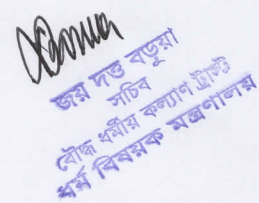 জয় দত্ত বড়ুয়া
সচিব
বৌদ্ধ ধর্মীয় কল্যাণ ট্রাস্ট
ধর্ম বিষয়ক মন্ত্রণালয়